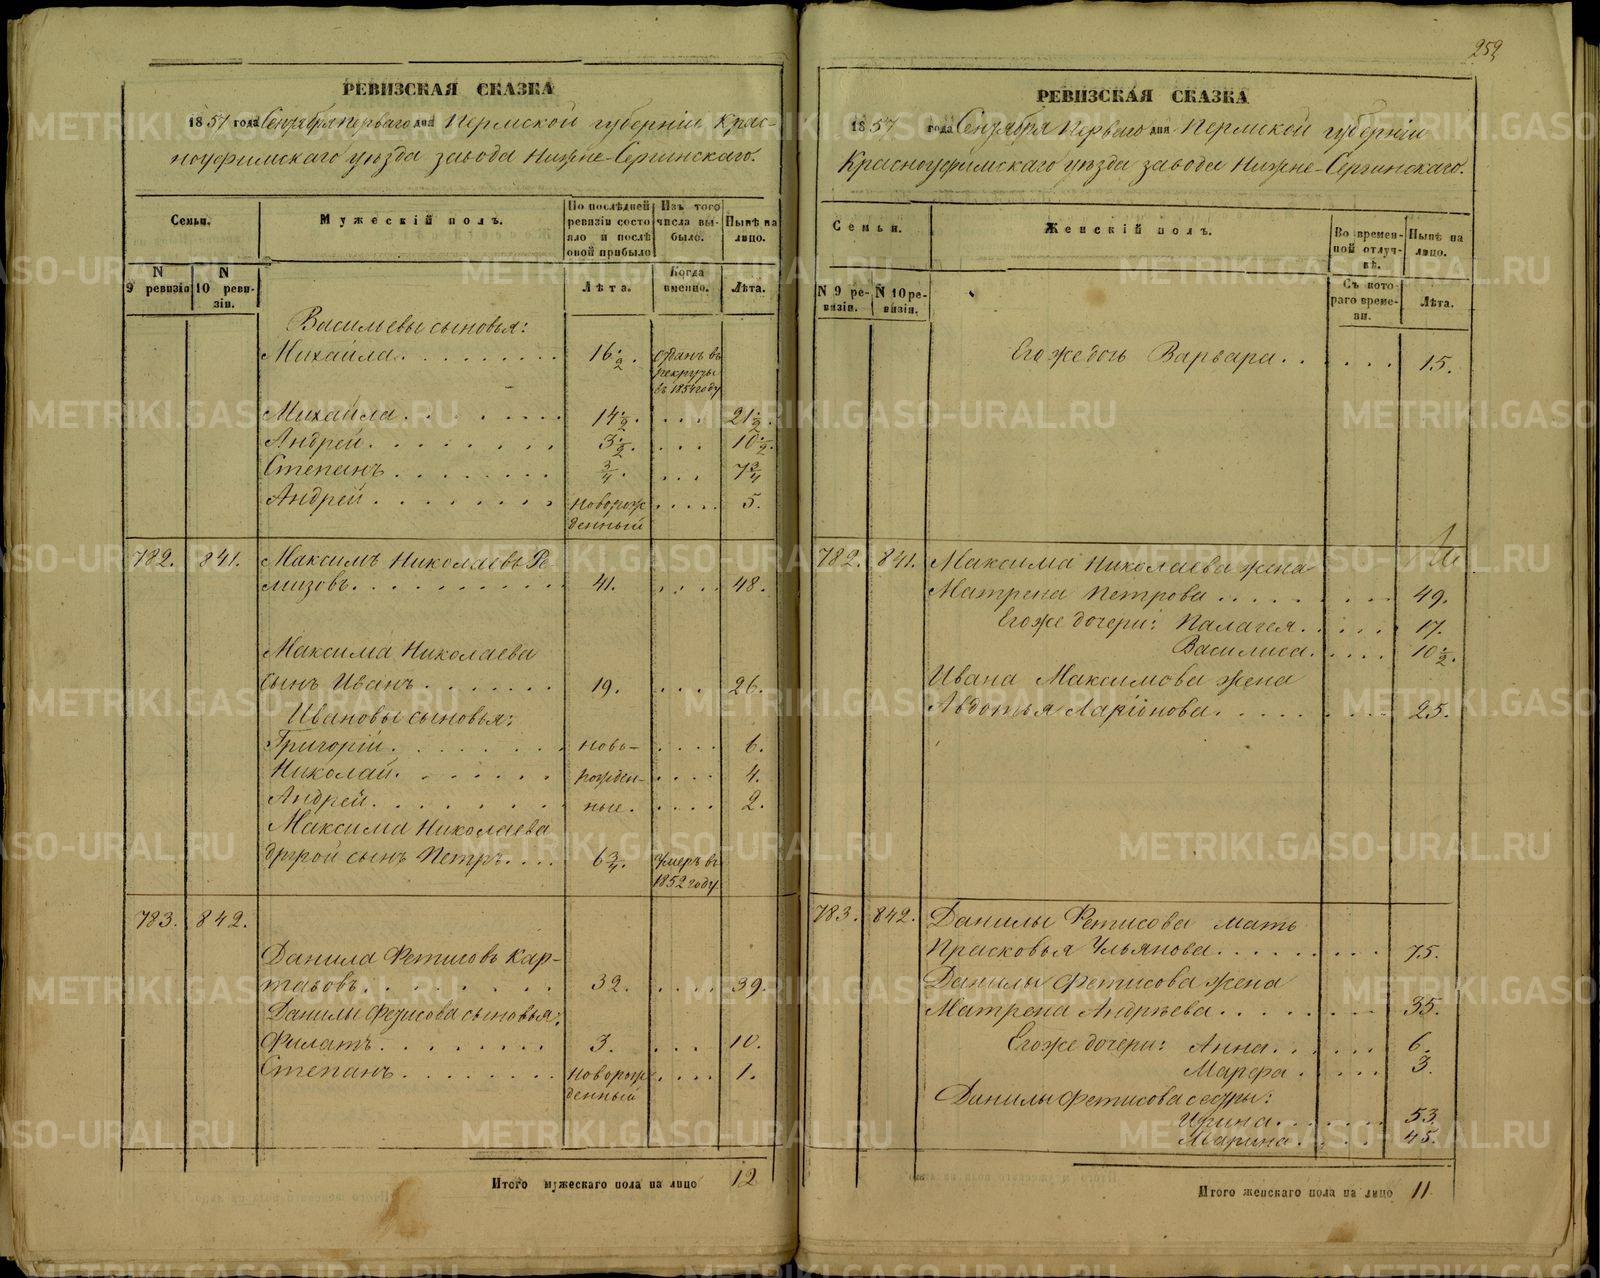 252
РЕВИЗСКАЯ СКАЗКА
1857 года Сентября перваго дня Пермской губерніи Крас-
ноуфимскаго уѣзда завода Нижне-Сергинскаго.
Семьи.
Мужескій полъ.
По послѣдней ревизіи состояло и послѣ оной прибыло
Изъ того числа выбыло.
Нынѣ на лицо.
N 9 ревизіи
N 10 ревизіи.
Лѣта.
Когда именно.
Лѣта.
Васильевы сыновья:
Михайла 16 1/2. отданъ въ рекруты въ 1854 году
Михайла 14 1/2. 21 1/2.
Андрей 3 1/2. 10 1/2.
Степанъ 3/4. 7 3/4
Андрей новорожденный 5.
782. 841. Максимъ Николаевъ Ре-
мизовъ 41. 48.
Максима Николаева
сынъ Иванъ 19. 26.
Ивановы сыновья:
Григорій ново- 6.
Николай рожден- 4.
Андрей ные. 2.
Максима Николаева
другой сынъ Петръ 6 3/4. умеръ въ 1852 году
783. 842.
Данила Фетисовъ Кар-
тавовъ 32. 39.
Данилы Фетисова сыновья:
Филатъ 3. 10.
Степанъ новорожденный 1.
Итого мужескаго пола на лицо 12
РЕВИЗСКАЯ СКАЗКА
1857 года Сентября Перваго дня Пермской губерніи
Красноуфимскаго уѣзда завода Нижне-Сергинскаго.
Семьи.
Женскій полъ.
Во временной отлучкѣ.
Нынѣ на лицо.
N 9 ревизіи.
N 10 ревизіи.
Съ котораго времени.
Лѣта.
Его же дочь Варвара 15.
782. 841. Максима Николаева жена
Матрена Петрова 49.
Его же дочери: Палагея 17.
Василиса 10 1/2.
Ивана Максимова жена
Авдотья Ларіонова 25.
783. 842. Данилы Фетисова мать
Прасковья Ульянова 75.
Данилы Фетисова жена
Матрена Андреева 35.
Его же дочери: Анна 6.
Марфа 3.
Данилы Фетисова сестры:
Ирина 53.
Марина 45.
Итого женскаго пола на лицо 11
METRIKI.GASO-URAL.RU